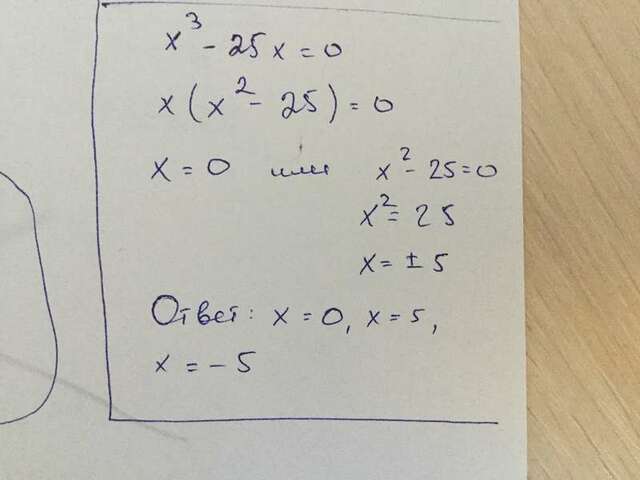 x³ - 25x = 0
x(x² - 25) = 0
x = 0 или x² - 25 = 0
x² = 25
x = ± 5
Ответ: x = 0, x = 5,
x = - 5